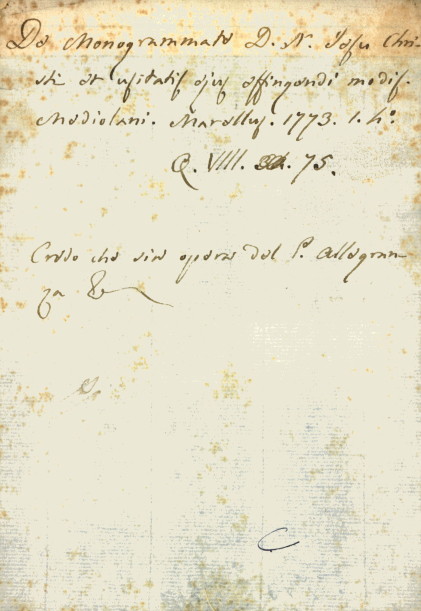 De Monogrammate D. N. Jesu Chri-
sti et usitatis ejus effingendi modis.
Mediolani. Marellus. 1773. 1. 4º.
Q. VIII. 75.
Credo che sia opera del P. Allegran-
za
C